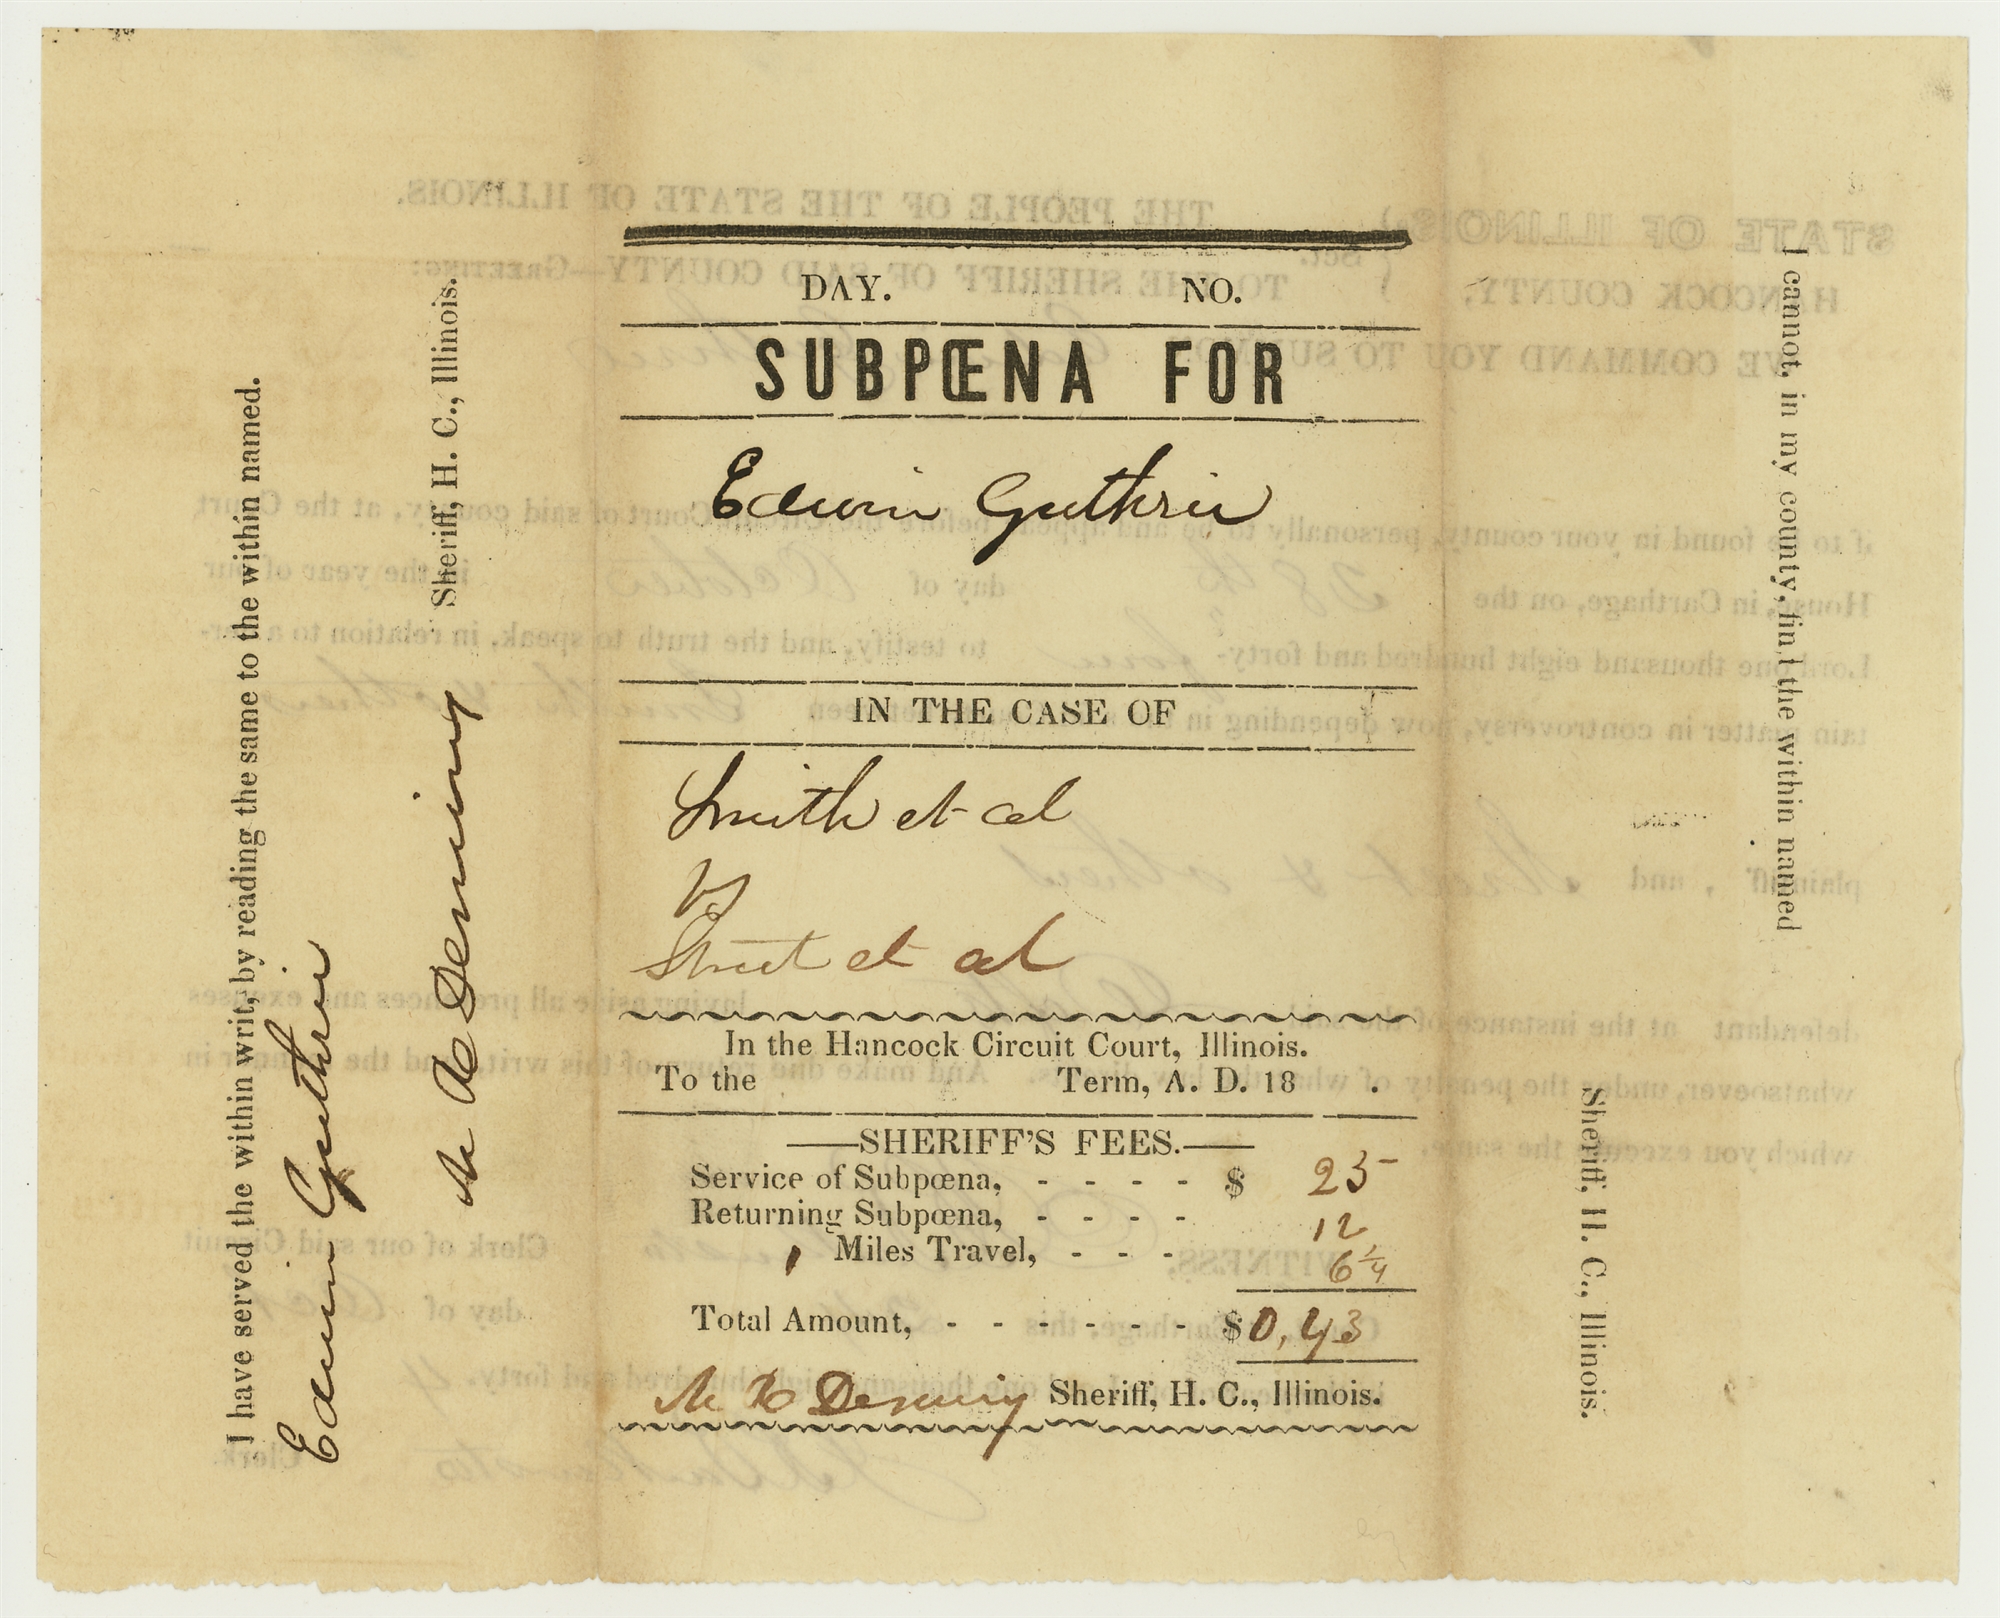 I have served the within writ, by reading the same to the within named.
Edwin Guthrie
M R Deming
Sheriff, H. C., Illinois.
DAY. NO.
SUBPŒNA FOR
Edwin Guthrie
IN THE CASE OF
Smith et al
vs
Street et al
In the Hancock Circuit Court, Illinois.
To the Term, A. D. 18 .
——SHERIFF'S FEES.——
Service of Subpœna, - - - - $ 25
Returning Subpœna, - - - - 12
1 Miles Travel, - - - 6 1/4
Total Amount, - - - - - - $0,43
M R Deming Sheriff, H. C., Illinois.
I cannot, in my county, find the within named
Sheriff, H. C., Illinois.